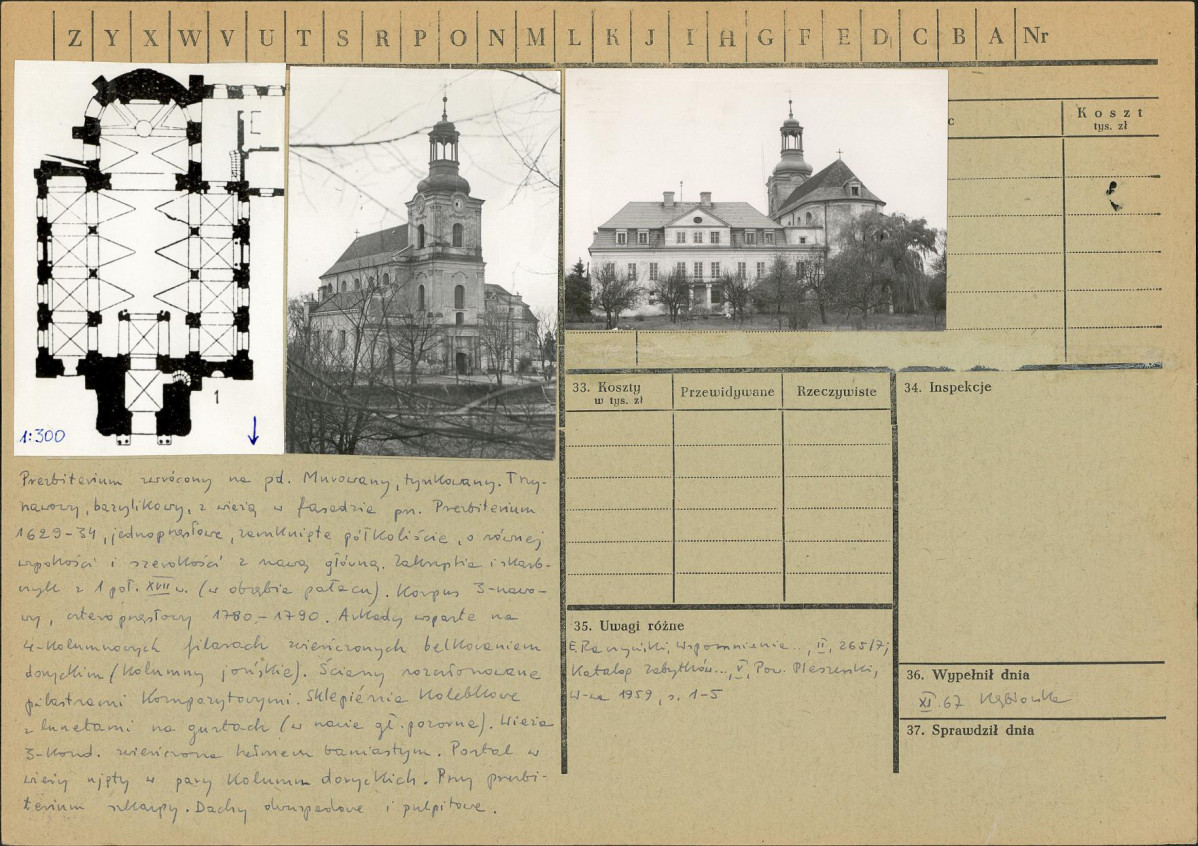 Z Y X W V U T S R P O N M L K J I H G F E D C B A Nr
c
Koszt
tys. zł
1
1:300
Prezbiterium zwrócony na pd. Murowany, tynkowany. Trzy-
nawowy, bazylikowy, z wieżą w fasadzie pn. Prezbiterium
1629-34, jednoprzęsłowe, zamknięte półkoliście, o równej
wysokości i szerokości z nawą główną. Zakrystia i skarb-
czyk z 1 poł. XVII w. (w obrębie pałacu). Korpus 3-nawo-
wy, czteroprzęsłowy 1780-1790. Arkady wsparte na
4-kolumnowych filarach zwieńczonych belkowaniem
doryckim (kolumny jońskie). Ściany rozczłonkowane
pilastrami kompozytowymi. Sklepienia kolebkowe
z lunetami na gurtach (w nawie gł. pozorne). Wieża
3-kond. zwieńczona hełmem baniastym. Portal w
wieży ujęty w pary kolumn doryckich. Przy prezbi-
terium szkarpy. Dachy dwuspadowe i pulpitowe.
33. Koszty
w tys. zł
Przewidywane
Rzeczywiste
34. Inspekcje
35. Uwagi różne
E. Raczyński, Wspomnienia..., II, 265/7;
Katalog zabytków..., V, Pow. Pleszewski,
W-wa 1959, s. 1-5
36. Wypełnił dnia
XI.67
37. Sprawdził dnia